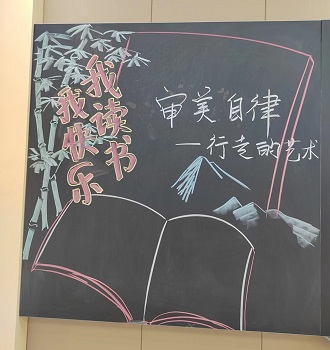 我读书
我快乐
审美自律
一行走的艺术